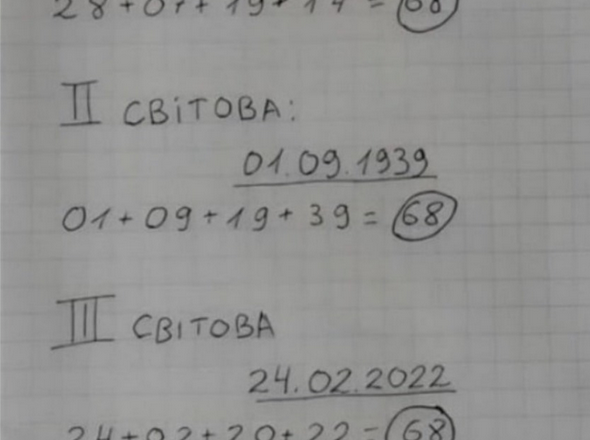 28+07+19+14=68
II СВІТОВА:
01.09.1939
01+09+19+39=68
III СВІТОВА
24.02.2022
24+02+20+22=68